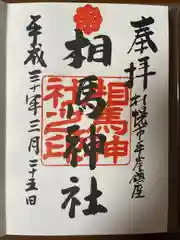 奉拝
札幌市平岸鎮座
相馬神社
相馬神
社之印
平成三十年三月二十五日